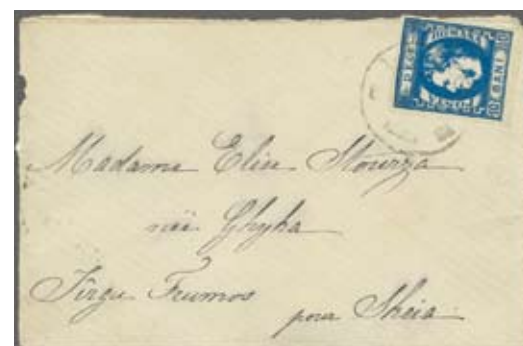 10 BANI
Madame Elise Stourza
née Ghyka
Tirgu Frumos
pour Skeia